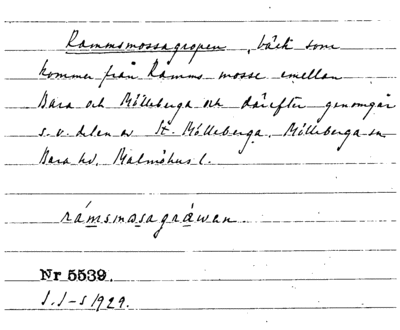 Rammsmossagropen, bäck som
kommer från Ramms mosse emellan
Bara och Mölleberga och därefter genomgår
s.v. delen av St. Mölleberga. Mölleberga sn
Bara hd, Malmöhus l.
rámsmosagräwan.
Nr 5539.
1929.